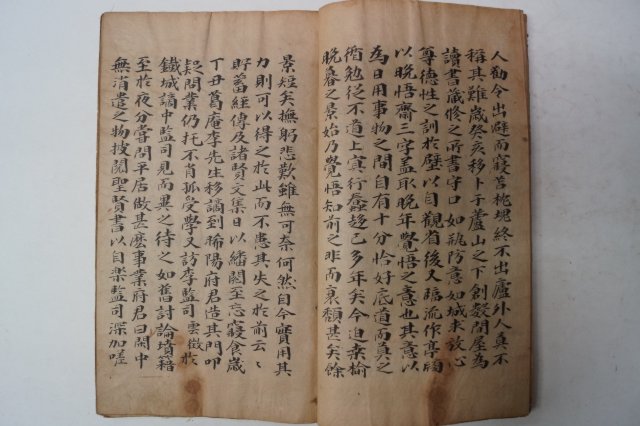 人勸令出避而寢苫枕塊終不出廬外人莫不
稱其難歲癸亥移卜于蘆山之下創數間屋為
讀書藏修之所書守口如甁防意如城求放心
尊德性之訓於壁以自觀省後又臨流作亭扁
以晩悟齋三字盖取晩年覺悟之意也其意以
為日用事物之間自有十分恰好底道而莫之
循勉從不道上冥行蠢趍已多年矣今迫桑榆
晩暮之景始乃覺悟知前之非而衰頹甚矣餘
景短矣撫躬悲歎雖無可奈何然自今實用其
力則可以得之於此而不患其失之於前云〻
貯蓄經傳及諸賢文集日以繙閱至忘寢食歲
丁丑葛庵李先生移謫到晞陽府君造其門叩
疑問業仍托不肖孤受學又訪李監司雲徵於
鐵城謫中監司見而異之待之如舊討論墳籍
至於夜分嘗問平居做甚麽事業府君曰閑中
無消遣之物披閱聖賢書以自樂監司深加嗟